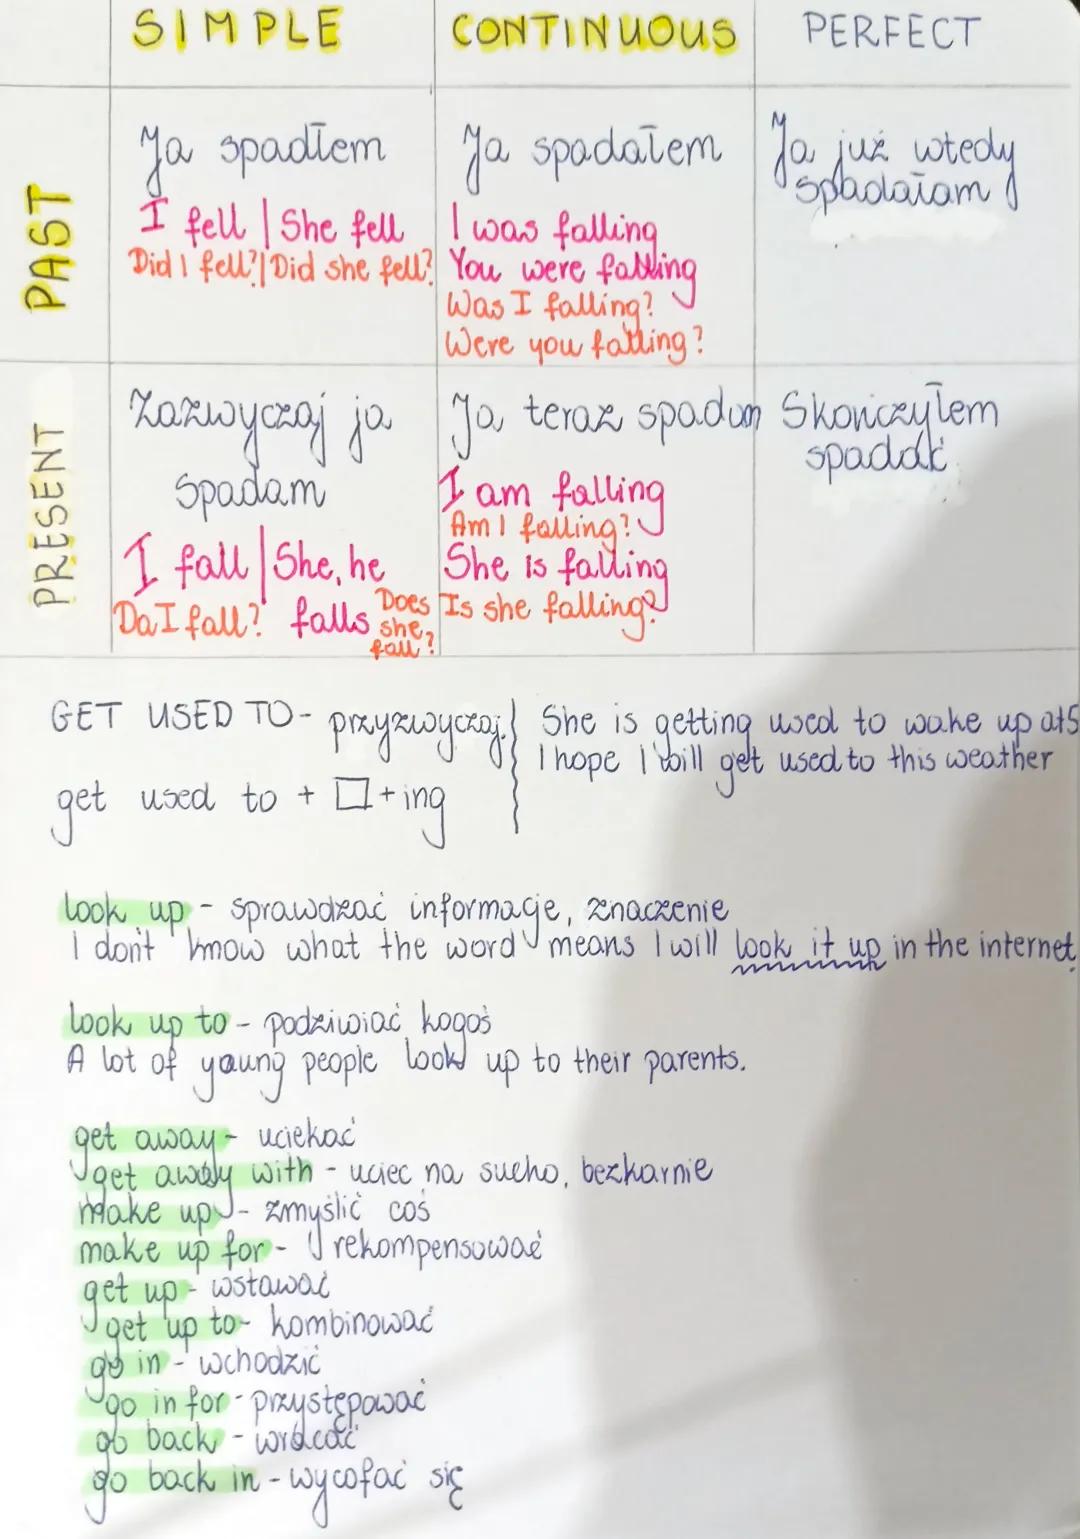 SIMPLE CONTINUOUS PERFECT
PAST
Ja spadłem
I fell | She fell
Did I fell? | Did she fell?
Ja spadałem
I was falling
You were falling
Was I falling?
Were you falling?
Ja już wtedy
spadałam
PRESENT
Zazwyczaj ja
spadam
I fall | She, he
falls
Do I fall?
Does
she
fall?
Ja teraz spadam
I am falling
Am I falling?
She is falling
Is she falling?
Skończyłem
spadać
GET USED TO - przyzwyczaj.
get used to + □ + ing
She is getting used to wake up at 5
I hope I will get used to this weather
look up - sprawdzać informacje, znaczenie
I don't know what the word means I will look it up in the internet.
look up to - podziwiać kogoś
A lot of young people look up to their parents.
get away - uciekać
get away with - uciec na sucho, bezkarnie
make up - zmyślić coś
make up for - rekompensować
get up - wstawać
get up to - kombinować
go in - wchodzić
go in for - przystępować
go back - wracać
go back in - wycofać się